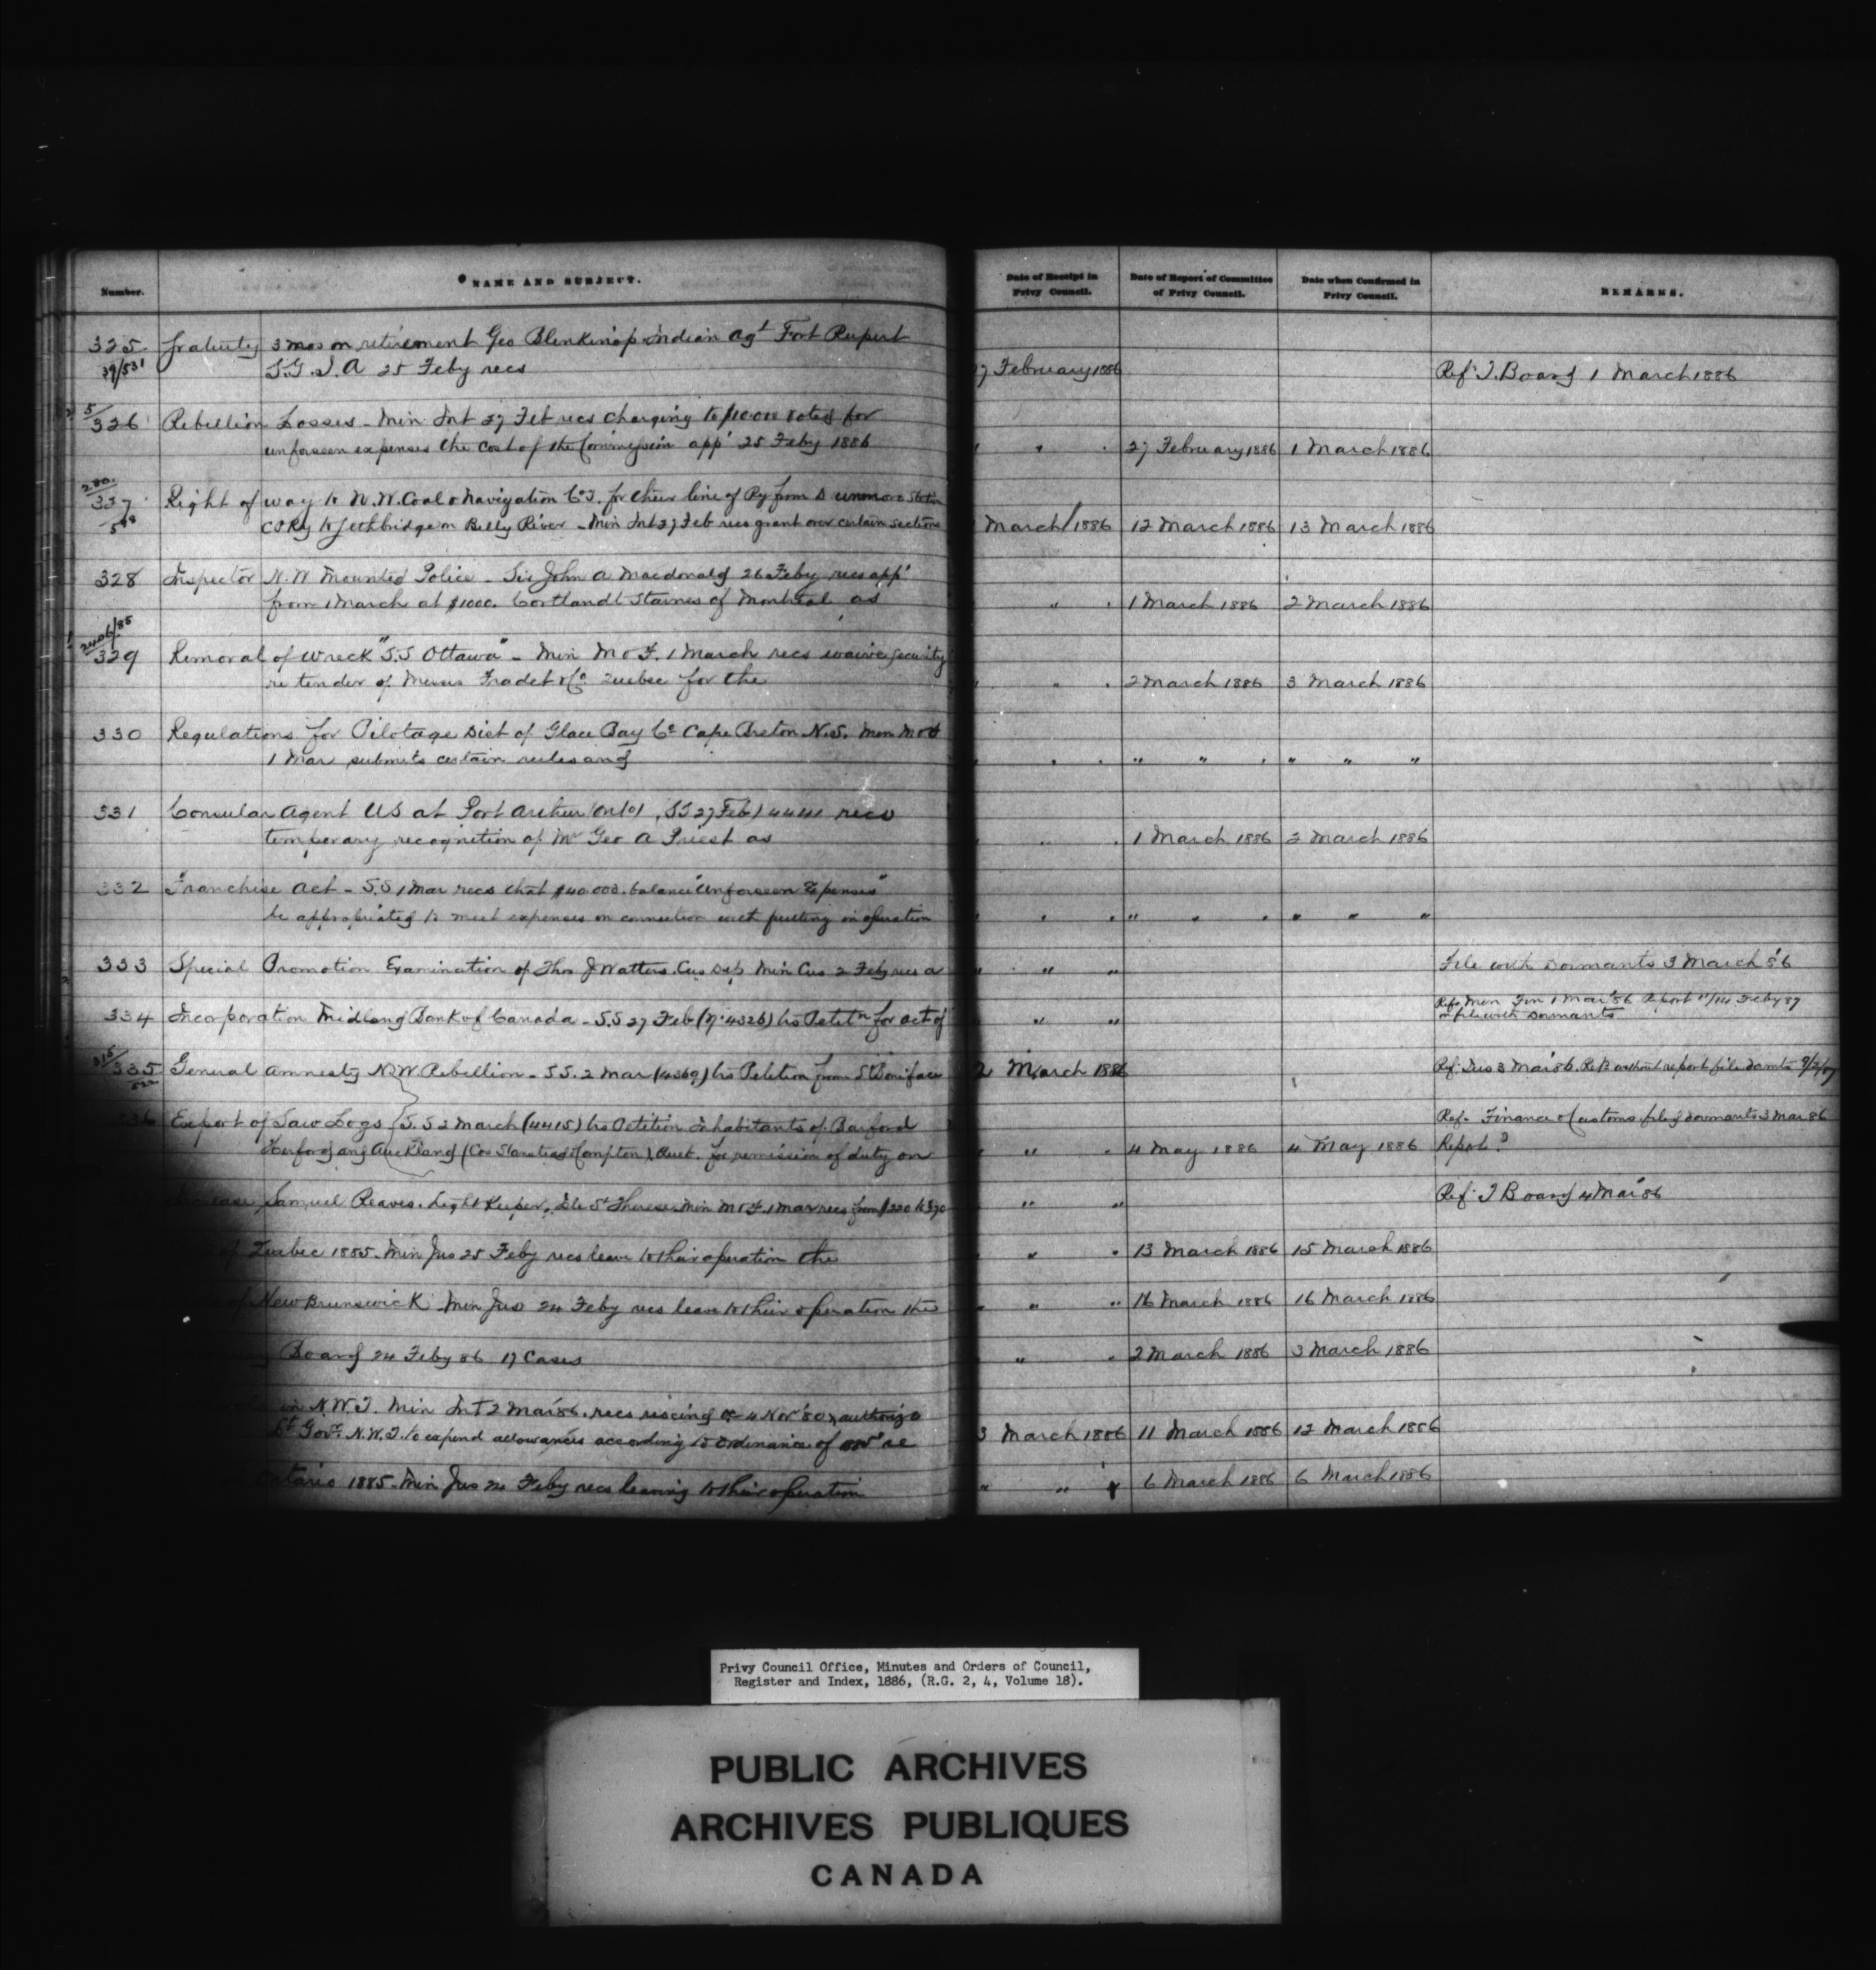 Number.
NAME AND SUBJECT.
Date of Receipt in Privy Council.
Date of Report of Committee of Privy Council.
Date when Confirmed in Privy Council.
REMARKS.
325 Gratuity 3 mos on retirement Geo Blenkinsop Indian Agt Fort Rupert
39/531 S.G.I.A 25 Feby recs 27 February 1886 Ref T. Board 1 March 1886
5/326 Rebellion Losses - Min Int 27 Feb recs charging to $10.000 voted for
unforseen expenses the cost of the Commission app' 25 Feby 1886 " " " 27 February 1886 1 March 1886
280. 327 Right of way to N.W. Coal & Navigation Co. for their line of Ry from Dunmore Station
CPRy to Lethbridge on Belly River - Min Int 27 Feb recs grant over certain sections 1 March 1886 12 March 1886 13 March 1886
328 Inspector N.W Mounted Police - Sir John A Macdonald 26 Feby recs app'
from 1 March at $1000. Cortlandt Starnes of Montreal as " " 1 March 1886 2 March 1886
2406/85 329 Removal of wreck "S.S Ottawa" - Min M & F. 1 March recs waive security
re tender of Messrs Fradet & Co Quebec for the " " " 2 March 1886 3 March 1886
330 Regulations for Pilotage Dist of Glace Bay Co Cape Breton N.S. Min M & F
1 Mar submits certain rules and " " " " " " " " "
331 Consular Agent US at Port Arthur (Onto) SS 27 Feb (4441) recs
temporary recognition of Mr Geo A Priest as " " " 1 March 1886 2 March 1886
332 Franchise Act - S.S 1 Mar recs that $40.000. balance "Unforseen Expenses"
be appropriated to meet expenses in connection with putting in operation " " " " " " " " "
333 Special Promotion Examination of Thos J Watters. Cus Dep Min Cus 2 Feby recs a " " " File with Dormants 3 March '86
334 Incorporation Midland Bank of Canada - S.S 27 Feb (4326) hs Petitn for act of " " Ref Min Fin 1 Mar '86 Report 11/14 Feby 87
on file with Dormants
315/335 General Amnesty N.W. Rebellion - S.S. 2 Mar (4369) hs Petition from St Boniface 2 March 1886 Ref. Jus 3 Mar 86. Retd without report file Dormts 9/2/87
336 Export of Saw Logs S.S 2 March (4415) hs Petition Inhabitants of Barford Ref. Finance & Customs filed dormants 3 Mar 86
Hereford and Auckland (Cos Stanstead & Compton) Quebc. for remission of duty on " " " 4 May 1886 4 May 1886 Report?
Samuel Reaves. Light Keeper, Ile St Therese Min M & F. 1 Mar recs from $220 to $ " " Ref T Board 4 Mar 86
of Quebec 1885. Min Jus 25 Feby recs leave to their operation the " " 13 March 1886 15 March 1886
of New Brunswick Min Jus 24 Feby recs leave to their operation the " " " 16 March 1886 16 March 1886
Board 24 Feby 86 17 Cases " " 2 March 1886 3 March 1886
in N.W.T. Min Int 2 Mar 86. recs rescindg OC 4 Nov '80 & authorize
Lt Govr N.W.T. to expend allowances according to Ordinance of 3 March 1886 11 March 1886 12 March 1886
Ontario 1885 - Min Jus 24 Feby recs leaving to their operation " " " 6 March 1886 6 March 1886
Privy Council Office, Minutes and Orders of Council,
Register and Index, 1886, (R.G. 2, 4, Volume 18).
PUBLIC ARCHIVES
ARCHIVES PUBLIQUES
CANADA